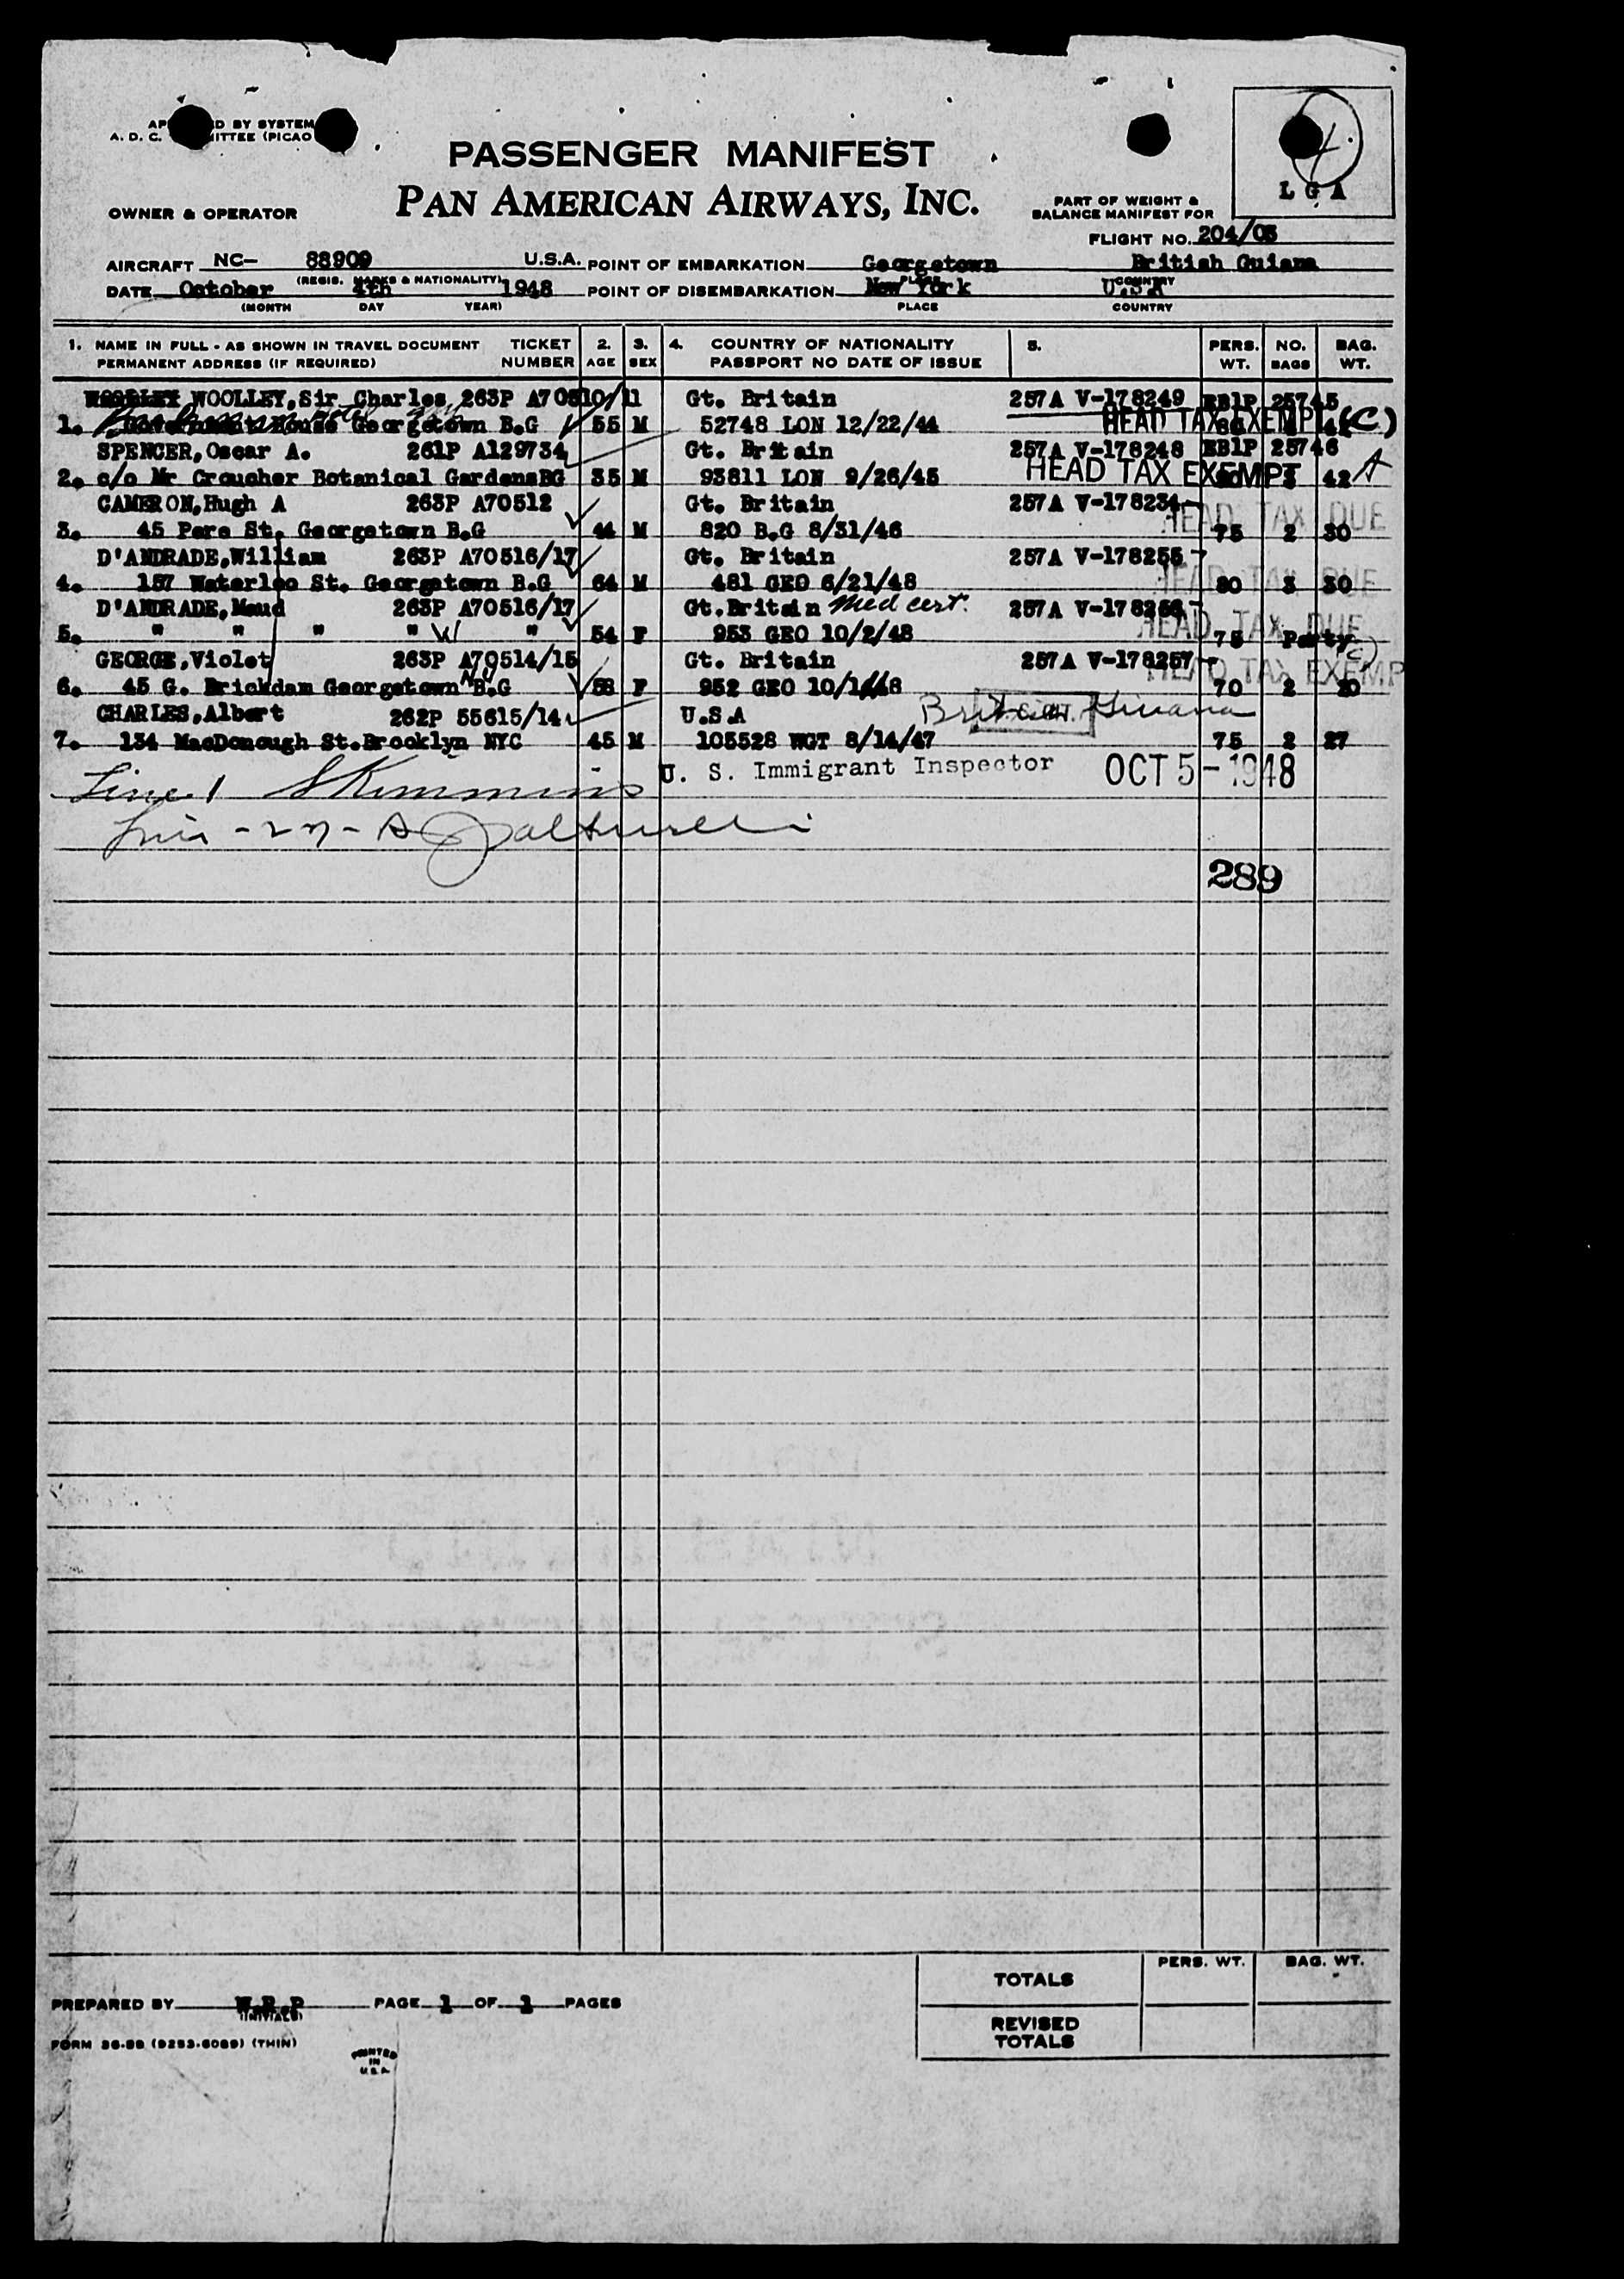 D BY SYSTEM
A. D. C. ITTEE (PICAO
PASSENGER MANIFEST
PAN AMERICAN AIRWAYS, INC.
OWNER & OPERATOR
PART OF WEIGHT &
BALANCE MANIFEST FOR
L G A
FLIGHT NO. 204/03
AIRCRAFT NC- 88909 U.S.A. POINT OF EMBARKATION Georgetown British Guiana
(REGIS. MARKS & NATIONALITY) PLACE COUNTRY
DATE October 4th 1948 POINT OF DISEMBARKATION New York U.S.A
(MONTH DAY YEAR) PLACE COUNTRY
1. NAME IN FULL - AS SHOWN IN TRAVEL DOCUMENT TICKET 2. 3. 4. COUNTRY OF NATIONALITY 5. PERS. NO. BAG.
PERMANENT ADDRESS (IF REQUIRED) NUMBER AGE SEX PASSPORT NO DATE OF ISSUE WT. BAGS WT.
WOOLLEY, Sir Charles 263P A70510/11 Gt. Britain 257A V-178249 EB1P 25745
1. Government House Georgetown B.G 55 M 52748 LON 12/22/44 HEAD TAX EXEMPT (C)
SPENCER, Oscar A. 261P A129734 Gt. Britain 257A V-178248 EB1P 25746
2. c/o Mr Croucher Botanical GardensBG 35 M 93811 LON 9/26/45 HEAD TAX EXEMPT 42
CAMERON, Hugh A 263P A70512 Gt. Britain 257A V-178234 HEAD TAX DUE
3. 45 Pere St. Georgetown B.G 44 M 820 B.G 8/31/46 75 2 30
D'ANDRADE, William 263P A70516/17 Gt. Britain 257A V-178255 HEAD TAX DUE
4. 157 Waterloo St. Georgetown B.G 64 M 481 GEO 6/21/48 80 3 30
D'ANDRADE, Maud 263P A70516/17 Gt. Britain Med cert. 257A V-178256 HEAD TAX DUE
5. " " " " " 54 F 953 GEO 10/2/48 75 Party
GEORGE, Violet 263P A70514/15 Gt. Britain 257A V-178257 HEAD TAX EXEMP
6. 45 G. Brickdam Georgetown B.G 58 F 952 GEO 10/1/48 70 2 20
CHARLES, Albert 262P 55615/14 U.S.A British Guiana
7. 134 MacDonough St. Brooklyn NYC 45 M 105528 WGT 8/14/47 75 2 27
U. S. Immigrant Inspector OCT 5 - 1948
Line 1
289
PREPARED BY W.R.P PAGE 1 OF 1 PAGES
(INITIALS)
TOTALS PERS. WT. BAG. WT.
REVISED
TOTALS
FORM (THIN)
PRINTED
IN
U.S.A.